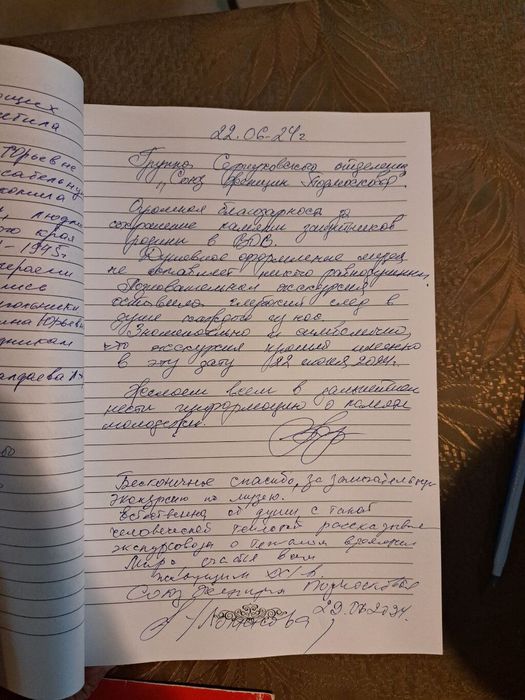 ющих
стила
Юрьевне
сательную
комила
людях
ого края
- 1945г
ись
на Юрьевн
дникам
алдаева
22.06.24г
Группа Серпуховского отделения
"Союз Женщин Подмосковья".
Огромная благодарность за
сохранение памяти защитников
родины в ВОВ.
Душевное оформление музея
не оставляет никого равнодушным.
Познавательная экскурсия
оставила глубокий след в
душе каждого из нас.
Знаменательно и символично,
что экскурсия прошла именно
в эту дату 22 июня 2024г.
Желаем всем в дальнейшем
нести информацию о памяти
молодежи.
Бесконечное спасибо, за замечательную
экскурсию по музею.
от души, с такой
человеческой теплотой рассказывала
экскурсовод о тяжелом времени
Мира счастья вам
живущим XXI в.
Союз Женщин Подмосковья
22.06.2024г.